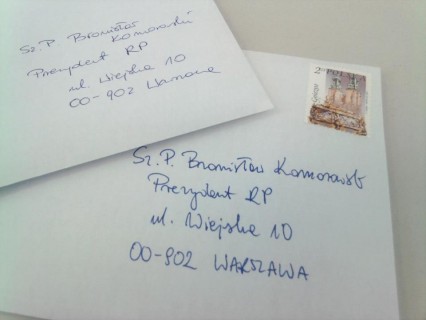 Sz. P. Bronisław
Komorowski
Prezydent RP
ul. Wiejska 10
00-902 Warszawa
Sz. P. Bronisław Komorowski
Prezydent RP
ul. Wiejska 10
00-902 WARSZAWA
2